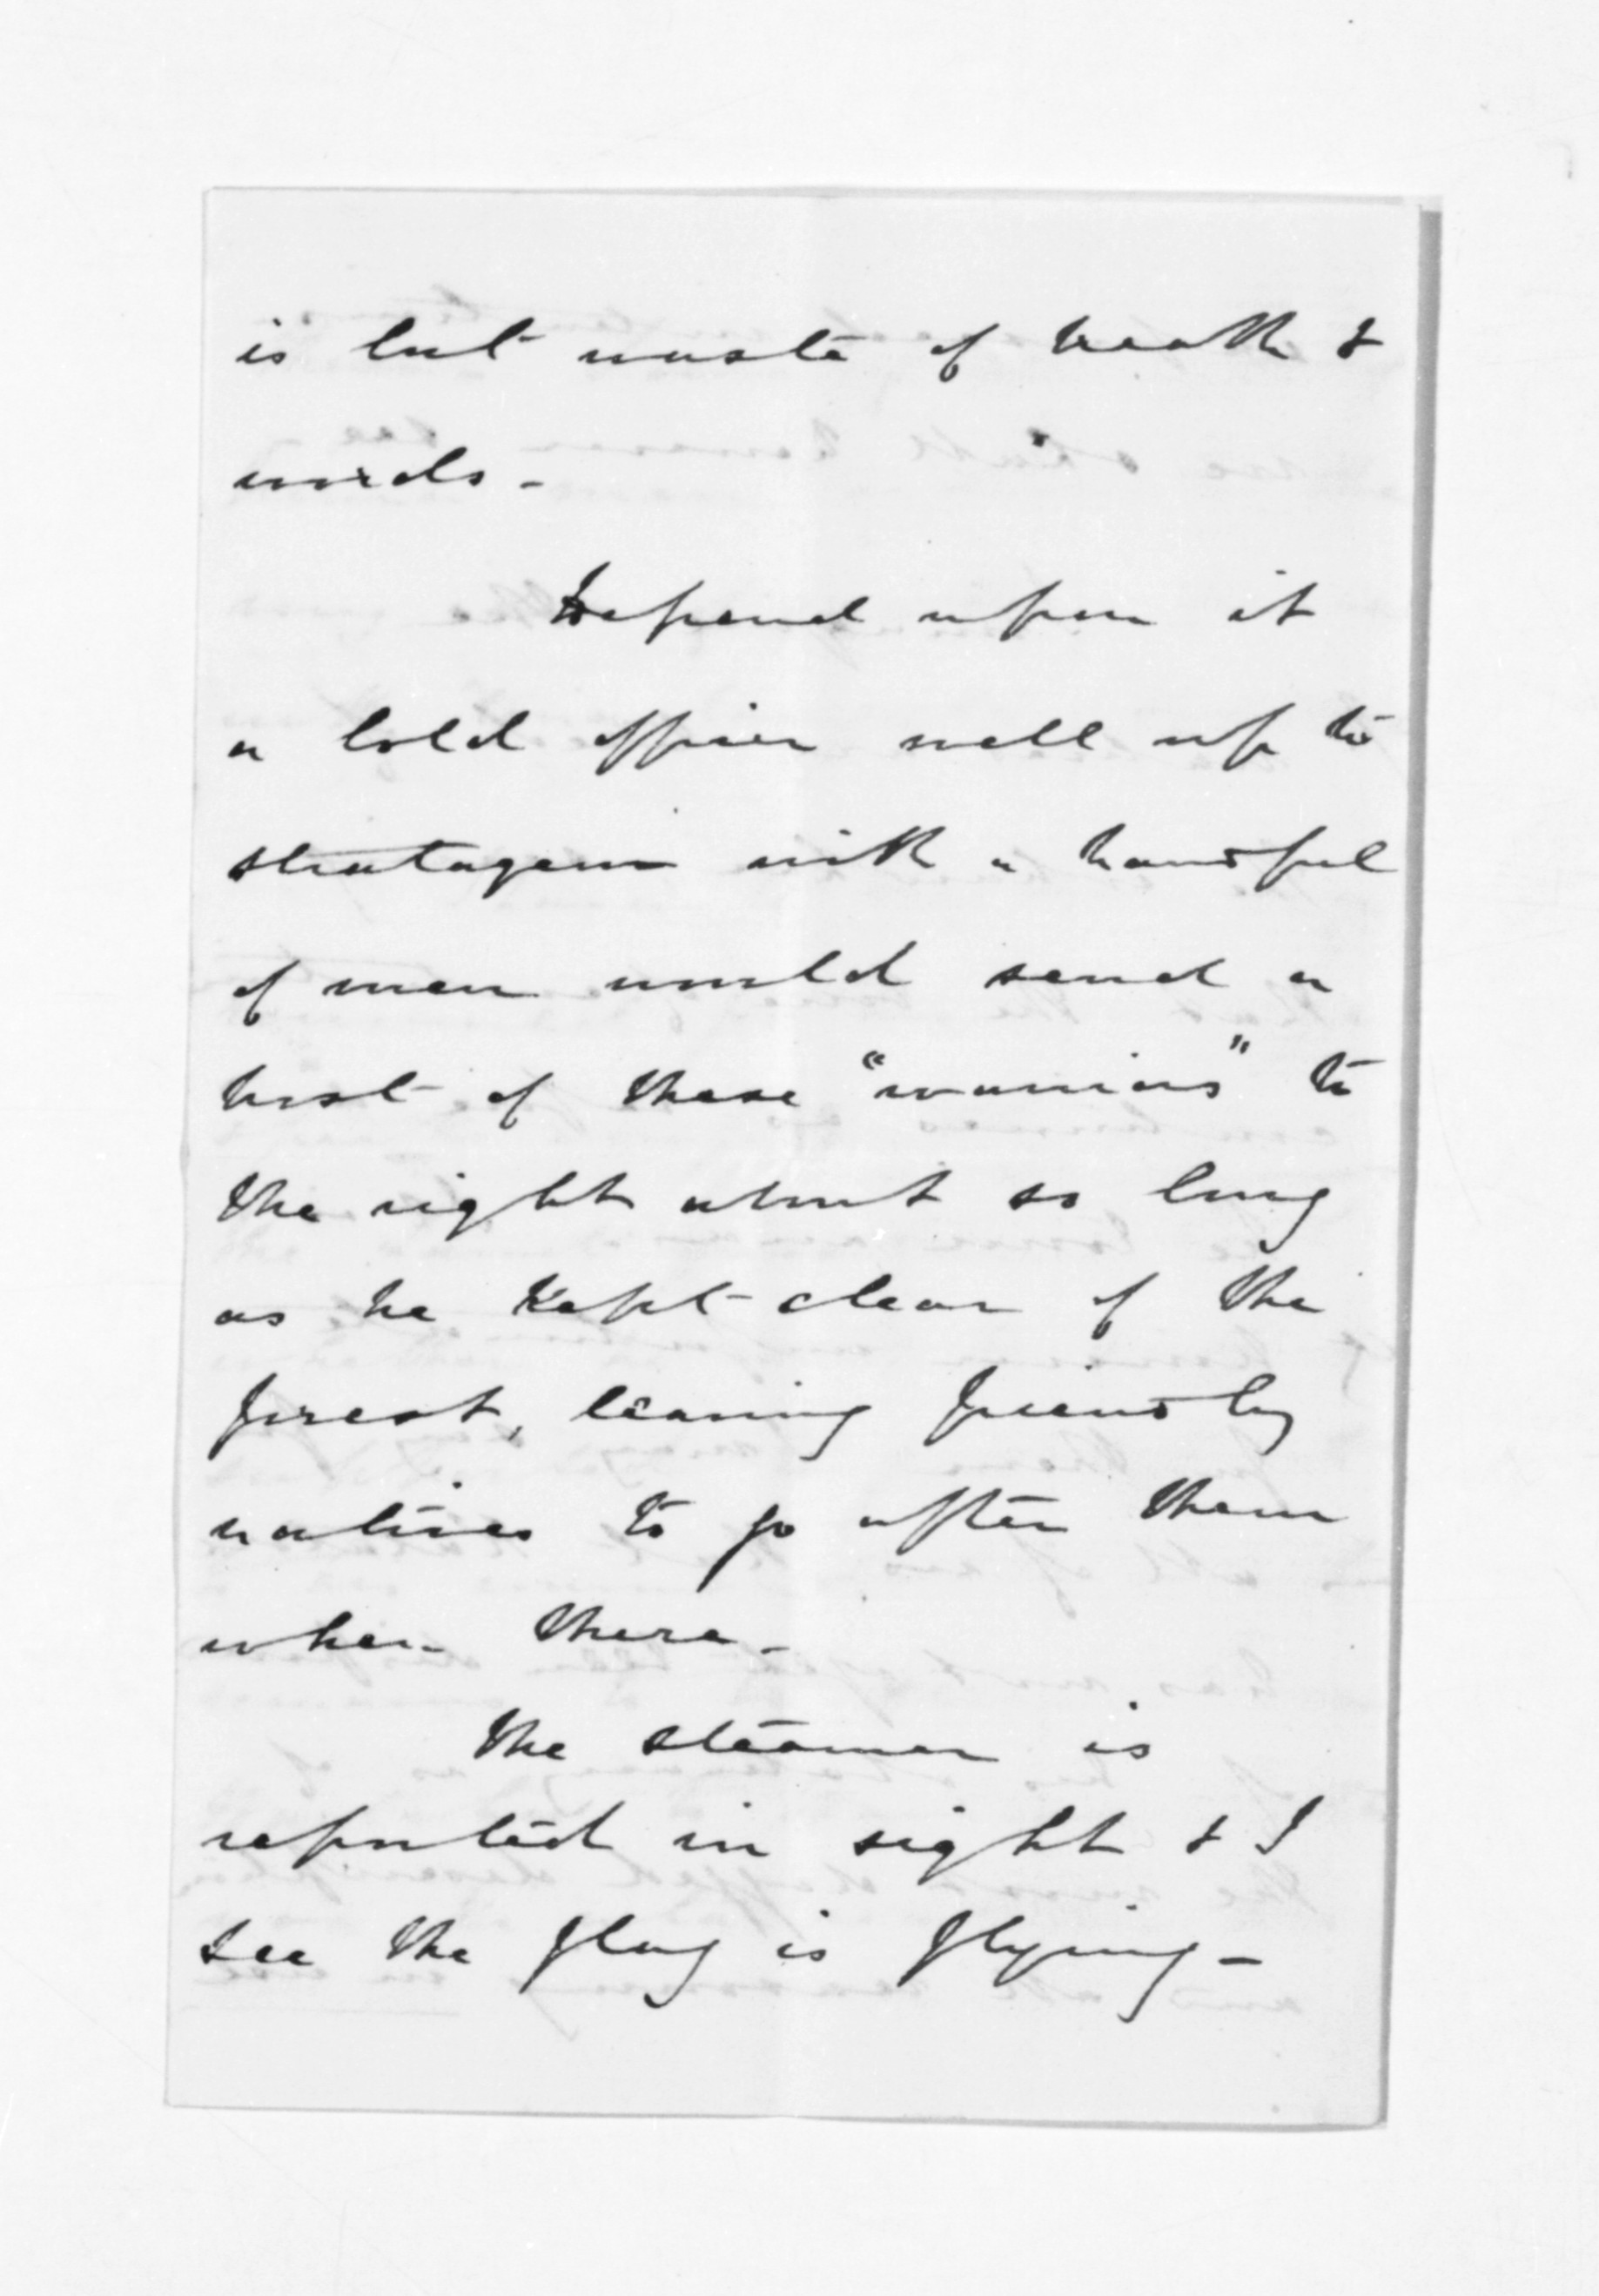 is but waste of breath &
words -
Depend upon it
a bold officer well up to
stratagem with a handful
of men would send a
host of these "warriors" to
the right about so long
as he kept clear of the
forest, leaving friendly
natives to go after them
when there -
The steamer is
reported in sight & I
see the flag is flying -